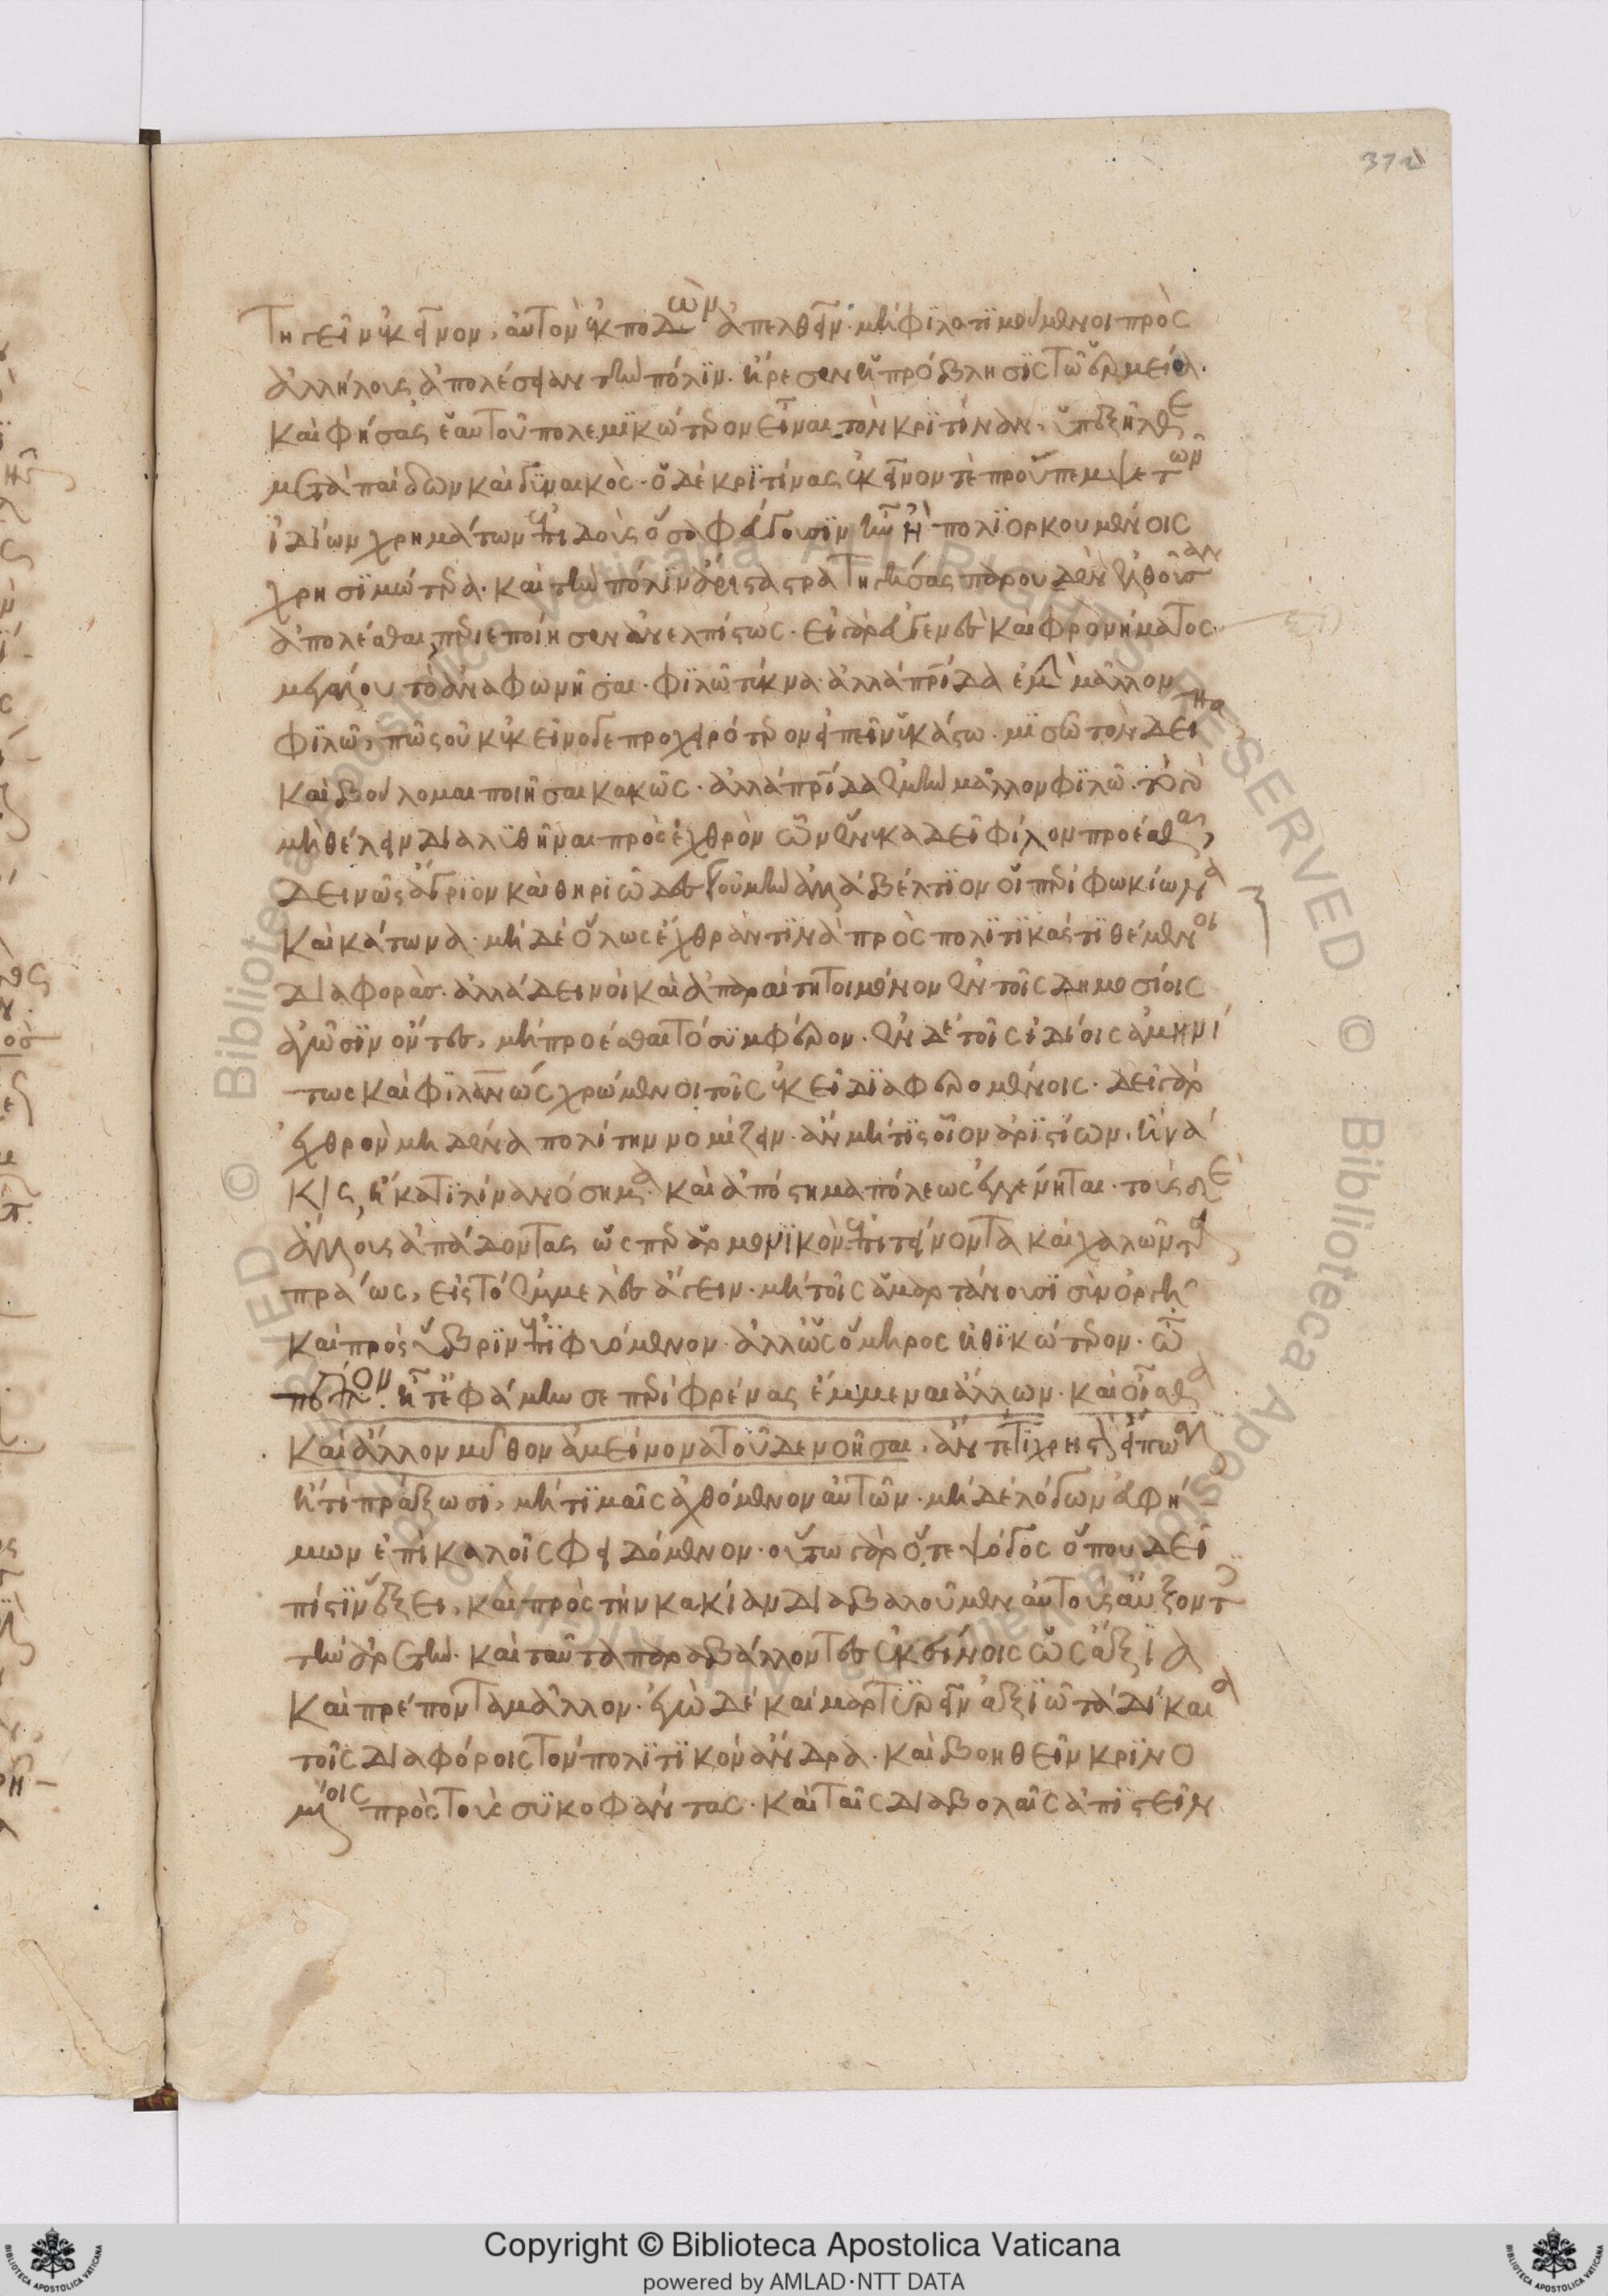 372
τηγεῖν ἐκεῖνον, αὐτὸν ἐκποδὼν ἀπελθεῖν· μὴ φιλοτιμούμενοι πρὸς
ἀλλήλους ἀπολέσειαν τὴν πόλιν. ἤρεσεν ἡ πρόβλησις τῷ ἑρμείᾳ.
καὶ φήσας ἑαυτοῦ πολεμικώτερον εἶναι τὸν κριτίναν, ὑπεξῆλθε
μετὰ παίδων καὶ γυναικός. ὁ δὲ κριτίνας ἐκεῖνόν τε προύπεμψε τῶν
ἰδίων χρημάτων ἐπιδοὺς ὅσα φεύγουσιν ἦν ἢ πολιορκουμένοις
χρησιμώτερα. καὶ τὴν πόλιν ἄριστα στρατηγήσας παρ' οὐδὲν ἐλθοῦσαν
ἀπολέσθαι περιεποίησεν ἀνελπίστως. εἰ γὰρ εὐγενὲς καὶ φρονήματος
μεγάλου τὸ ἀναφωνῆσαι· φιλῶ τέκνα ἀλλὰ πατρίδα ἐμὴν μᾶλλον
φιλῶ, πῶς οὐκ ἐκεῖνό γε προχειρότερον εἰπεῖν ἑκάστῳ· μισῶ τὸν δεῖνα
καὶ βούλομαι ποιῆσαι κακῶς· ἀλλὰ πατρίδα ἐμὴν μᾶλλον φιλῶ. τὸ γὰρ
μὴ θέλειν διαλυθῆναι πρὸς ἐχθρὸν ὧν ἕνεκα δεῖ φίλον προέσθαι,
δεινῶς ἄγριον καὶ θηριῶδες. οὐ μὴν ἀλλὰ βέλτιον οἱ περὶ φωκίωνα
καὶ κάτωνα· μηδὲ ὅλως ἔχθράν τινα πρὸς πολιτικὰς τιθέμενοι
διαφοράς. ἀλλὰ δεινοὶ καὶ ἀπαραίτητοι μένον ἐν τοῖς δημοσίοις
ἀγῶσιν ὄντες, μὴ προέσθαι τὸ συμφέρον. ἐν δὲ τοῖς ἰδίοις ἀμηνί
τως καὶ φιλανως χρώμενοι τοῖς ἐκεῖ διαφερομένοις. δεῖ γὰρ
ἐχθρὸν μηδένα πολίτην νομίζειν· ἂν μή τις οἷον ἀριστίων, ἢ νά
κις, ἢ κατιλίνα νόσημα καὶ ἀπόστημα πόλεως ἐγγένηται. τοὺς δὲ
ἄλλους ἀπάδοντας ὥσπερ ἁρμονικὸν ἐπιτείνοντα καὶ χαλῶντα
πράως, εἰς τὸ ἐμμελὲς ἄγειν· μὴ τοῖς ἁμαρτάνουσι σὺν ὀργῇ
καὶ πρὸς ὕβριν ἐπιφυόμενον· ἀλλ' ὡς ὅμηρος ἠθικώτερον· ὦ
πέπον. ἦ τ' ἐφάμην σε περὶ φρένας ἔμμεναι ἄλλων. καὶ οἶσθα
καὶ ἄλλον μῦθον ἀμείνονα τοῦδε νοῆσαι. ἄν τέ τι χρηστὸν εἴπωσιν
ἤ τι πράξωσι, μὴ τιμαῖς ἀχθόμενον αὐτῶν· μηδὲ λόγων εὐφή
μων ἐπὶ καλοῖς φειδόμενον· οὕτω γὰρ ὅ τε ψόγος ὅπου δεῖ
πίστιν ἕξει, καὶ πρὸς τὴν κακίαν διαβαλοῦμεν αὐτοὺς αὔξοντες
τὴν ἀρετήν. καὶ ταῦτα παραβάλλοντες ἐκείνοις ὡς ἄξια
καὶ πρέποντα μᾶλλον. ἐγὼ δὲ καὶ μαρτυρεῖν ἀξιῶ τὰ δίκαια
τοῖς διαφόροις τὸν πολιτικὸν ἄνδρα. καὶ βοηθεῖν κρινο
μένοις πρὸς τοὺς συκοφάντας. καὶ ταῖς διαβολαῖς ἀπιστεῖν
Copyright © Biblioteca Apostolica Vaticana
powered by AMLAD·NTT DATA